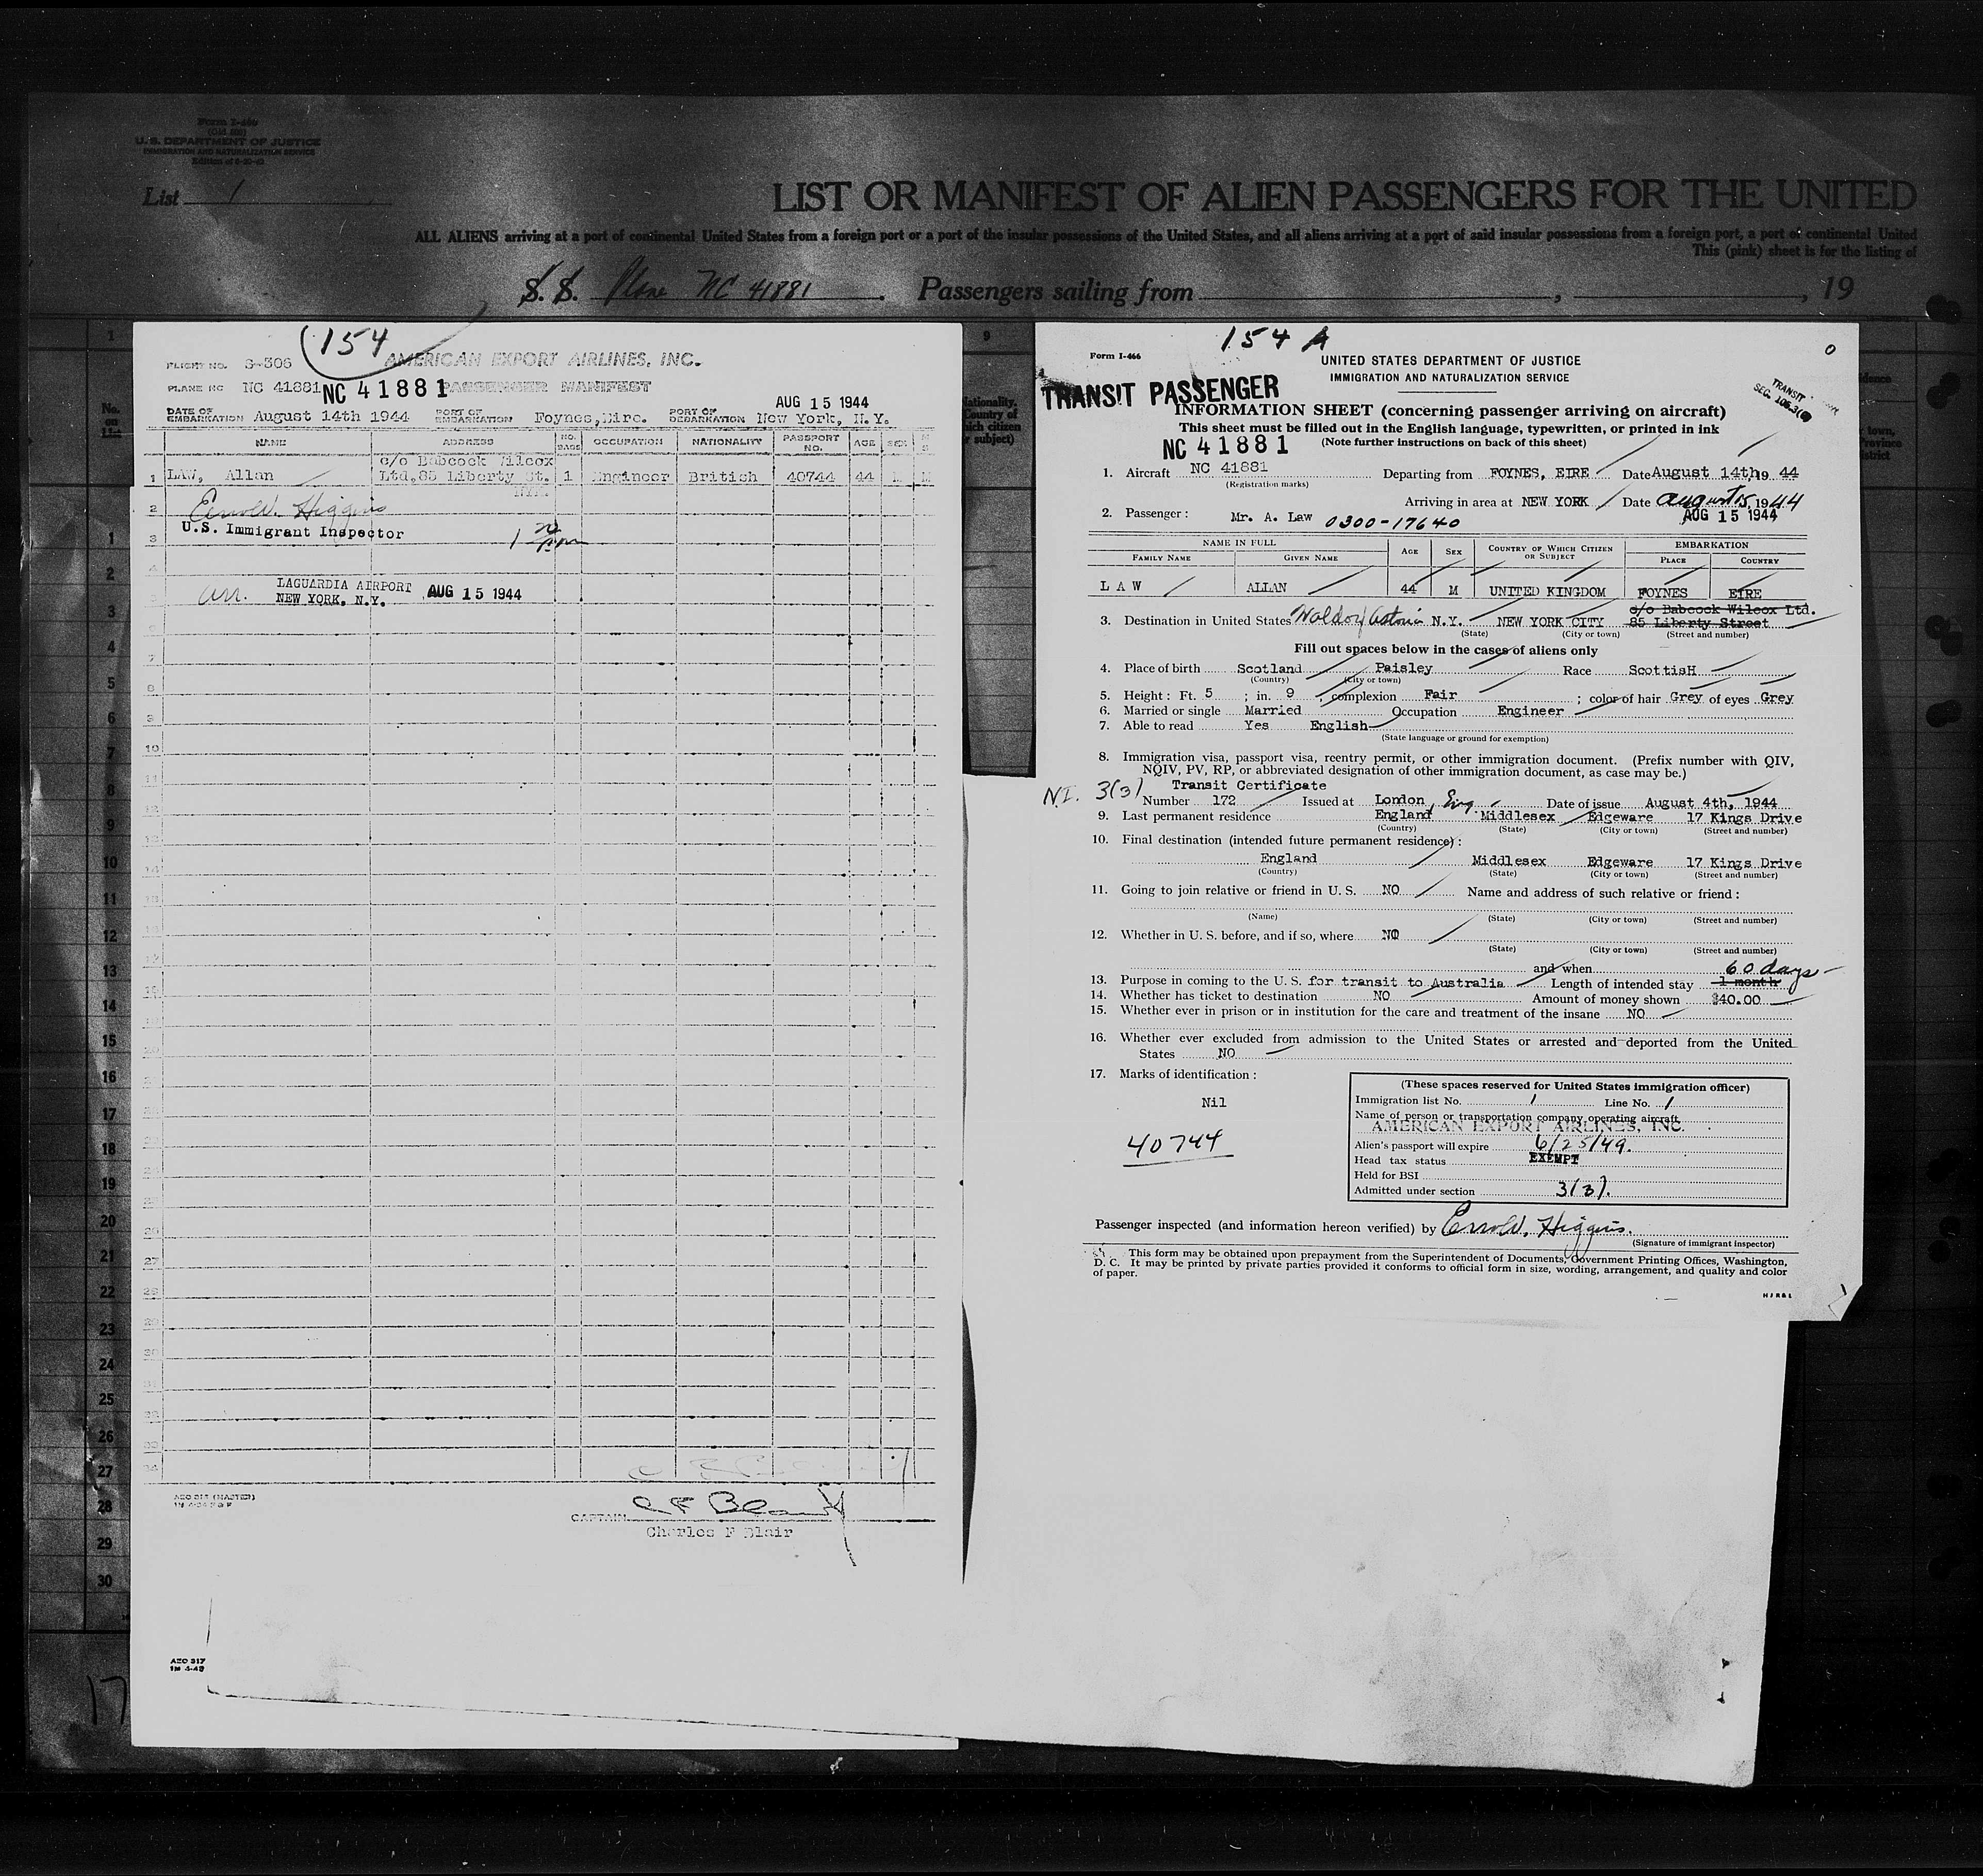 Form I-466
(Old 500)
U. S. DEPARTMENT OF JUSTICE
IMMIGRATION AND NATURALIZATION SERVICE
List 1
LIST OR MANIFEST OF ALIEN PASSENGERS FOR THE UNITED
ALL ALIENS arriving at a port of continental United States from a foreign port or a port of the insular possessions of the United States, and all aliens arriving at a port of said insular possessions from a foreign port, a port of continental United
This (pink) sheet is for the listing of
S. S. Plane NC 41881. Passengers sailing from , , 19
154
FLIGHT NO. S-306 AMERICAN EXPORT AIRLINES, INC.
PLANE NC NC 41881 NC 41881 PASSENGER MANIFEST
AUG 15 1944
DATE OF EMBARKATION August 14th 1944 PORT OF EMBARKATION Foynes, Eire. PORT OF DEBARKATION New York, N. Y.
NAME ADDRESS NO. BAGS OCCUPATION NATIONALITY PASSPORT NO. AGE SEX M S
c/o Babcock Wilcox
1 LAW, Allan Ltd, 85 Liberty St. 1 Engineer British 40744 44 M M
NYC.
2 Errol W. Higgins
U.S. Immigrant Inspector
3
4
arr. LAGUARDIA AIRPORT AUG 15 1944
NEW YORK, N.Y.
6
7
8
9
10
11
12
13
14
CAPTAIN C F Blair
Charles F Blair
AEO 317
1M 4-43
17
1
2
3
4
5
6
7
8
9
10
11
12
13
14
15
16
17
18
19
20
21
22
23
24
25
26
27
28
29
30
9
154 A
Form I-466
UNITED STATES DEPARTMENT OF JUSTICE
IMMIGRATION AND NATURALIZATION SERVICE
TRANSIT PASSENGER
TRANSIT
SEC. 106.3(
INFORMATION SHEET (concerning passenger arriving on aircraft)
This sheet must be filled out in the English language, typewritten, or printed in ink
NC 41881 (Note further instructions on back of this sheet)
1. Aircraft NC 41881 Departing from FOYNES, EIRE Date August 14th, 19 44
(Registration marks)
Arriving in area at NEW YORK Date August 15, 1944
AUG 15 1944
2. Passenger : Mr. A. Law 0300-17640
NAME IN FULL AGE SEX COUNTRY OF WHICH CITIZEN OR SUBJECT EMBARKATION
FAMILY NAME GIVEN NAME PLACE COUNTRY
L A W ALLAN 44 M UNITED KINGDOM FOYNES EIRE
c/o Babcock Wilcox Ltd.
3. Destination in United States Waldorf Astoria N.Y. NEW YORK CITY 85 Liberty Street
(State) (City or town) (Street and number)
Fill out spaces below in the cases of aliens only
4. Place of birth Scotland Paisley Race ScottisH
(Country) (City or town)
5. Height : Ft. 5 ; in. 9 ; complexion Fair ; color of hair Grey of eyes Grey
6. Married or single Married Occupation Engineer
7. Able to read Yes English
(State language or ground for exemption)
8. Immigration visa, passport visa, reentry permit, or other immigration document. (Prefix number with QIV,
NQIV, PV, RP, or abbreviated designation of other immigration document, as case may be.)
N.I. 3(3) Transit Certificate
Number 172 Issued at London, Eng. Date of issue August 4th, 1944
9. Last permanent residence England Middlesex Edgeware 17 Kings Drive
(Country) (State) (City or town) (Street and number)
10. Final destination (intended future permanent residence) :
England Middlesex Edgeware 17 Kings Drive
(Country) (State) (City or town) (Street and number)
11. Going to join relative or friend in U. S. NO Name and address of such relative or friend :
(Name) (State) (City or town) (Street and number)
12. Whether in U. S. before, and if so, where NO
(State) (City or town) (Street and number)
and when 60 days
13. Purpose in coming to the U. S. for transit to Australia Length of intended stay 1 month
14. Whether has ticket to destination NO Amount of money shown $40.00
15. Whether ever in prison or in institution for the care and treatment of the insane NO
16. Whether ever excluded from admission to the United States or arrested and deported from the United
States NO
17. Marks of identification :
Nil
40744
(These spaces reserved for United States immigration officer)
Immigration list No. 1 Line No. 1
Name of person or transportation company operating aircraft
AMERICAN EXPORT AIRLINES, INC.
Alien's passport will expire 6/25/49.
Head tax status EXEMPT
Held for BSI
Admitted under section 3(3).
Passenger inspected (and information hereon verified) by Errol W. Higgins.
(Signature of immigrant inspector)
This form may be obtained upon prepayment from the Superintendent of Documents, Government Printing Offices, Washington,
D. C. It may be printed by private parties provided it conforms to official form in size, wording, arrangement, and quality and color
of paper.